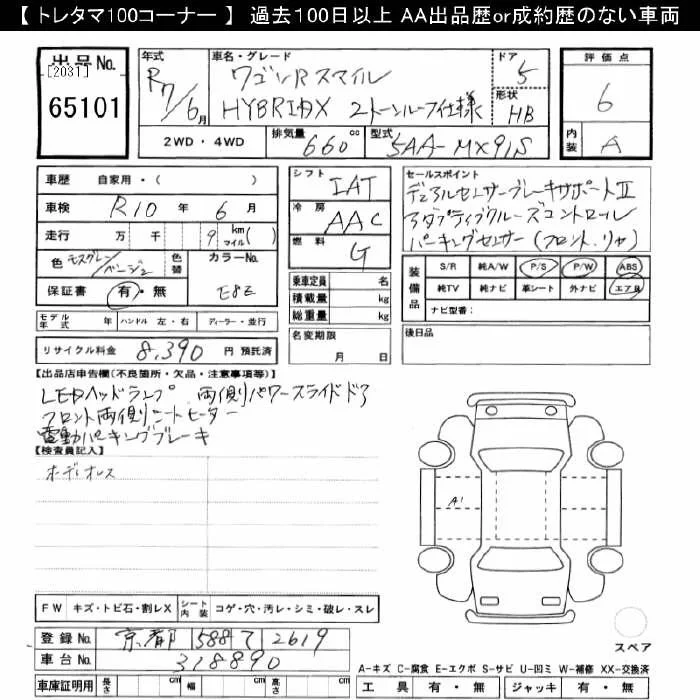 【 トレタマ100コーナー 】 過去100日以上 AA出品歴or成約歴のない車両
出品No.
[2031]
65101
年式
R7/6月
車名・グレード
ワゴンRスマイル
HYBRIDX 2トーンルーフ仕様
ドア
5
形状
HB
2WD・4WD
排気量 660 cc
型式 5AA-MX91S
評価点
6
内装 A
車歴 自家用・( )
車検 R10 年 6 月
走行 万 千 9 km マイル( )
色 モスグレー/ベージュ 色替 カラーNo. E8E
保証書 有・無
モデル年式 年 ハンドル 左・右 ディーラー・並行
リサイクル料金 8,390 円 預託済
シフト IAT
冷房 AAC
燃料 G
乗車定員 名
積載量 kg
総重量 kg
名変期限
月 日
セールスポイント
デュアルセンサーブレーキサポートII
アダプティブクルーズコントロール
パーキングセンサー(フロント、リヤ)
装備品
S/R 純A/W P/S P/W ABS
純TV 純ナビ 革シート 外ナビ エアB
ナビ型番:
後日品
【出品店申告欄(不良箇所・欠品・注意事項等)】
LEDヘッドランプ 両側パワースライドドア
フロント両側シートヒーター
電動パーキングブレーキ
【検査員記入】
ホーディオレス
A1
FW キズ・トビ石・割レX シート内装 コゲ・穴・汚レ・シミ・破レ・スレ
登録No. 京都 588 て 2619
車台No. 318890
スペア
A-キズ C-腐食 E-エクボ S-サビ U-凹ミ W-補修 XX-交換済
車庫証明用 長さ cm 幅 cm 高さ cm 工具 有・無 ジャッキ 有・無